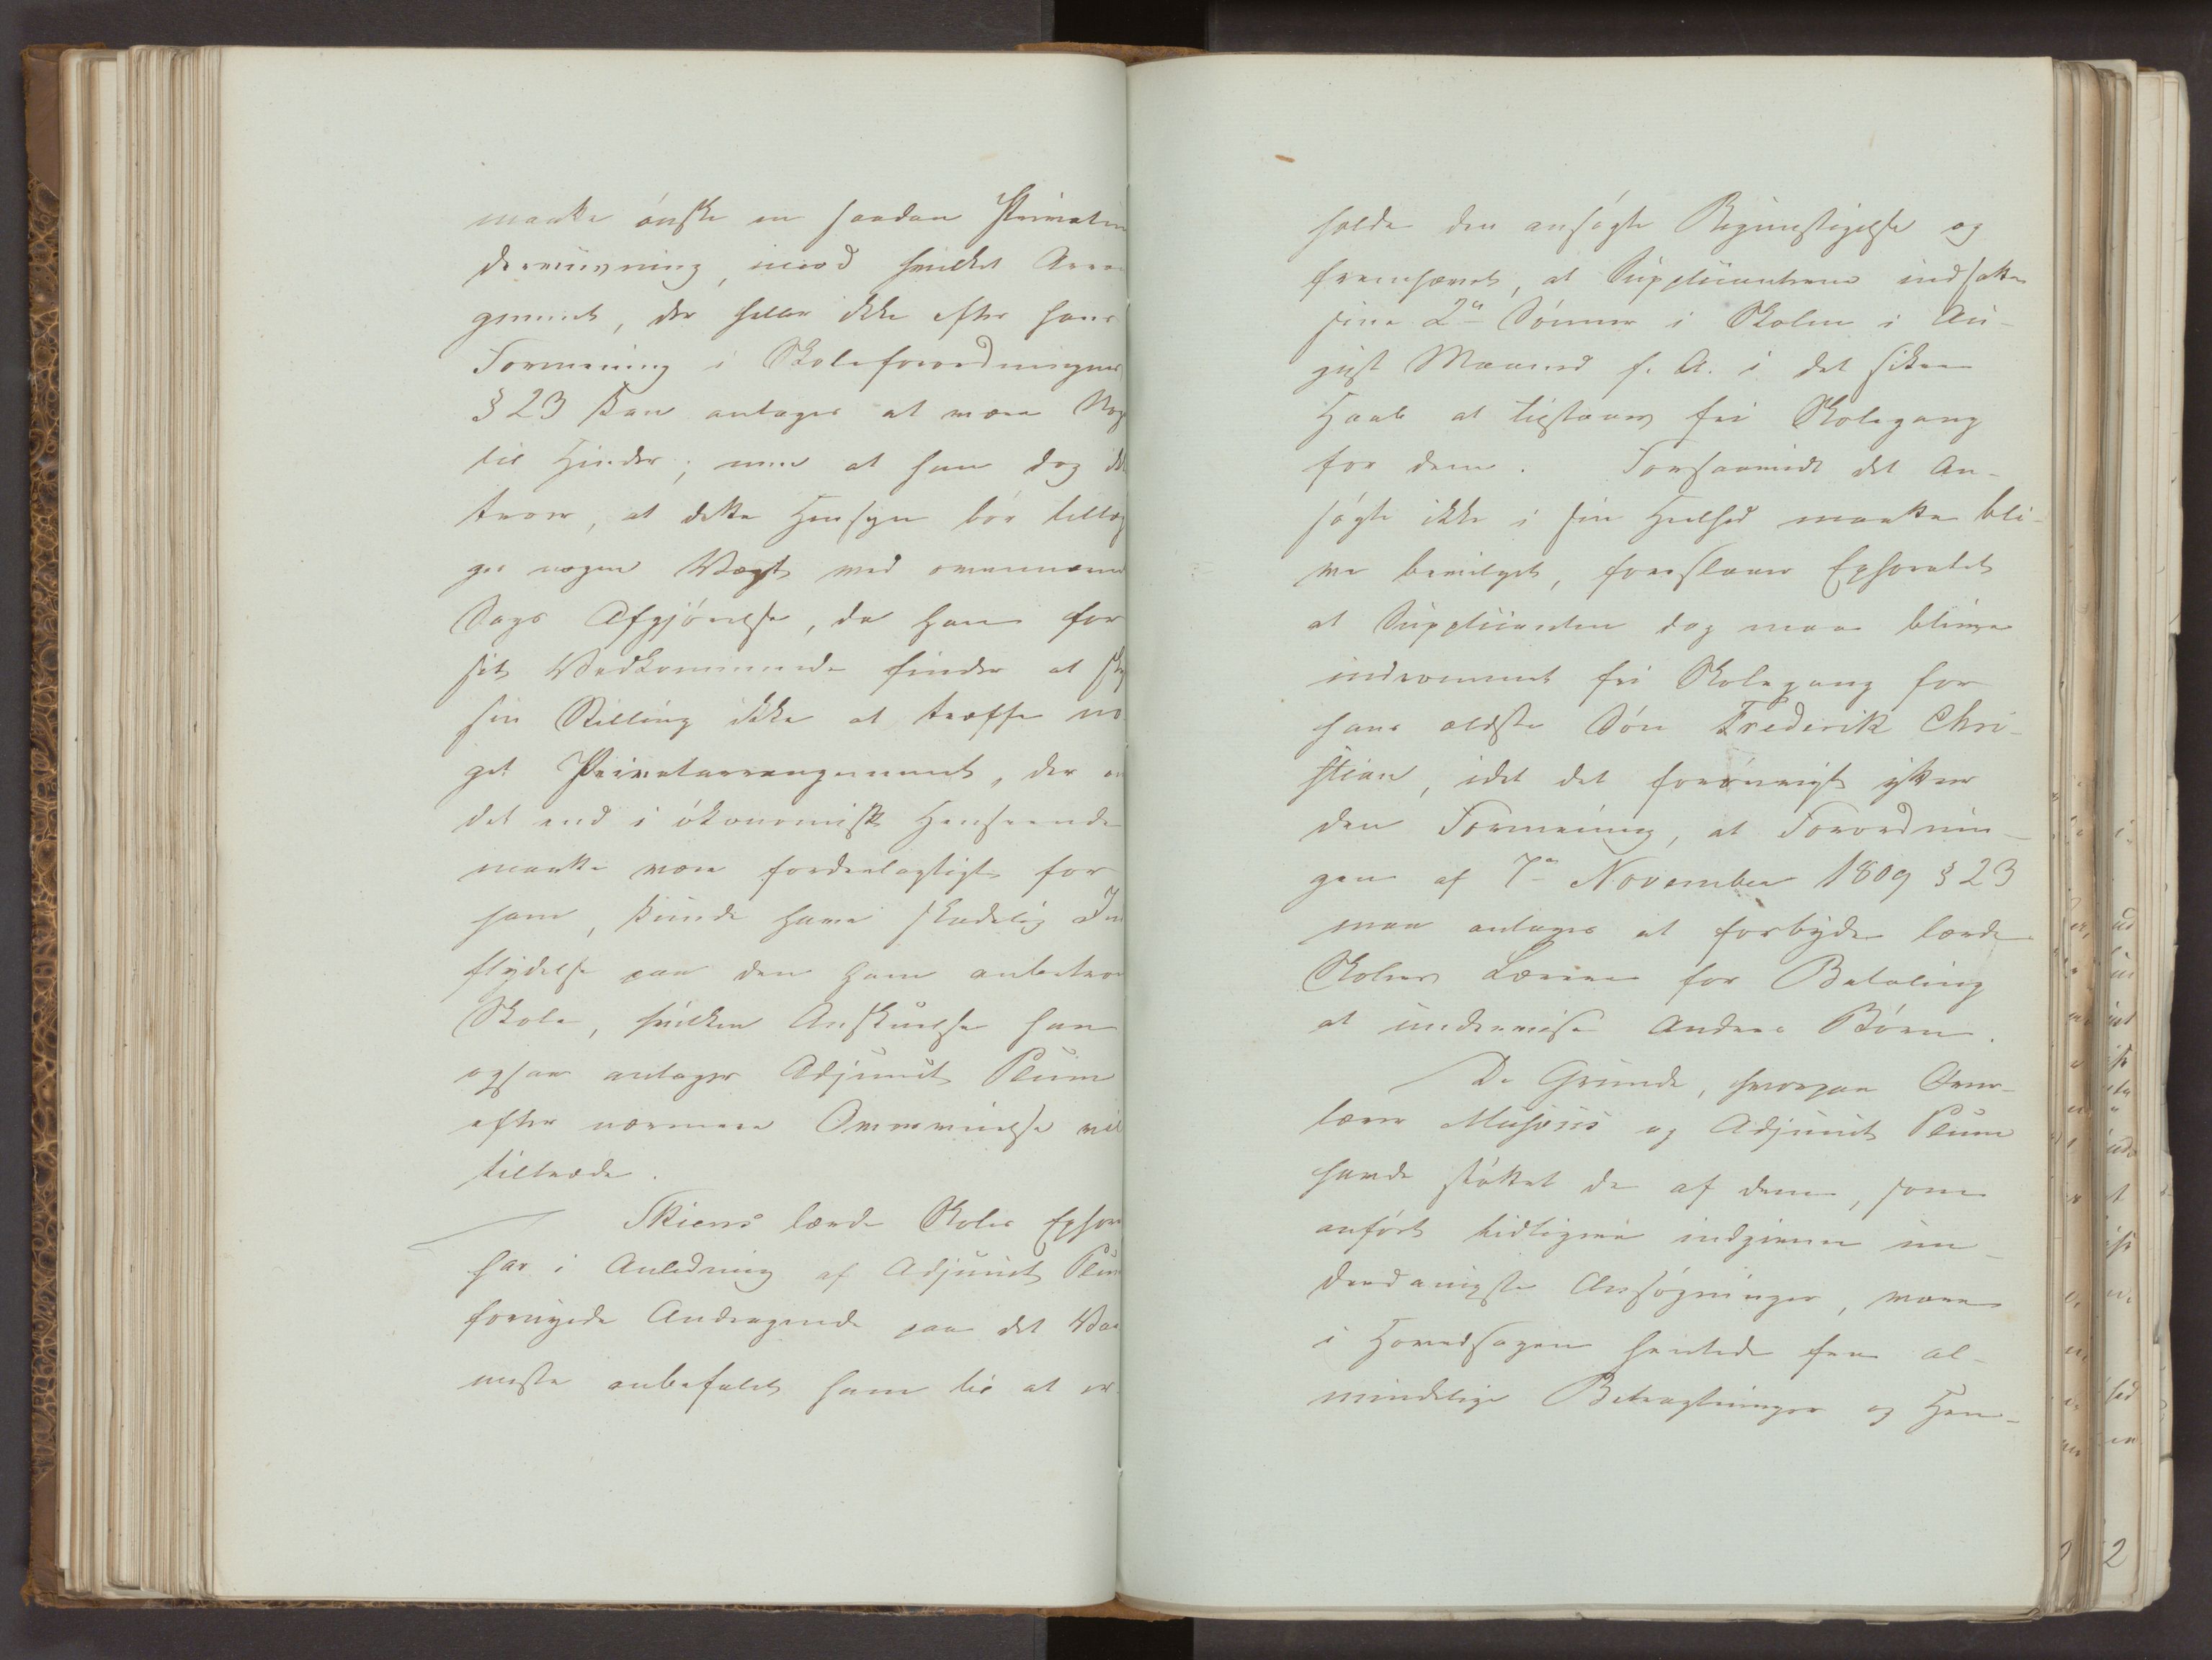 maatte ønske en saadan Privatun
derviisning, imod hvilket Arran
gement, der heller ikke efter hans
Formening i Skoleforordningens
§ 23 kan antages at være Nog
til Hinder; men at han dog ikk
troer, at dette Hensyn bør tillæg
ges nogen Vægt ved ovennævn
Sags Afgjørelse, da han for
sit Vedkommende finder at sky
sin Stilling ikke at træffe no
get Privatarrangement, der en
det end i økonomisk Henseende
maatte være fordeelagtigt for
ham, kunde have skadelig Ind
flydelse paa den ham anbetroe
Skole, hvilken Anskuelse han
ogsaa antager Adjunct Plum
efter nærmere Overveielse vil
tiltræde.
Skiens lærde Skoles Ephor
har i Anledning af Adjunct Plum
fornyede Andragende paa det Var
meste anbefalet ham til at er-
holde den ansøgte Begunstigelse og
fremhævet, at Supplicanten indsatte
sine 2de Sønner i Skolen i Au-
gust Maaned f. A. i det sikre
Haab at tilstaaes fri Skolegang
for dem. Forsaavidt det An-
søgte ikke i sin Heelhed maatte bli-
ve bevilget, foreslaaer Ephoratet
at Supplicanten dog maa blive
indrømmet fri Skolegang for
hans ældste Søn Frederik Chri-
stian, idet det forøvrigt ytrer
den Formening, at Forordnin-
gen af 7de November 1809 § 23
maa antages at forbyde lærde
Skolers Lærere for Betaling
at undervise Andres Børn.
De Grunde, hvorpaa Over-
lærer Musæus og Adjunct Plum
havde støttet de af dem, som
anført tidligere indgivne un-
derdanigste Ansøgninger, vare
i Hovedsagen hentede fra al-
mindelige Betragtninger og Hen-
2